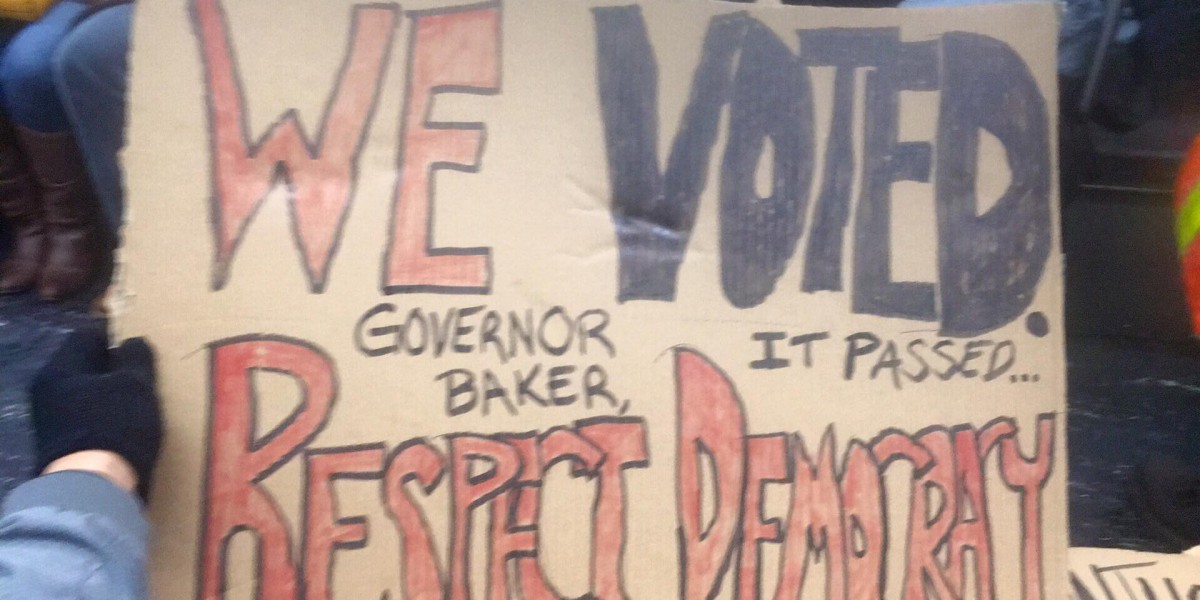 WE VOTED.
IT PASSED...
GOVERNOR
BAKER,
RESPECT DEMOCRACY